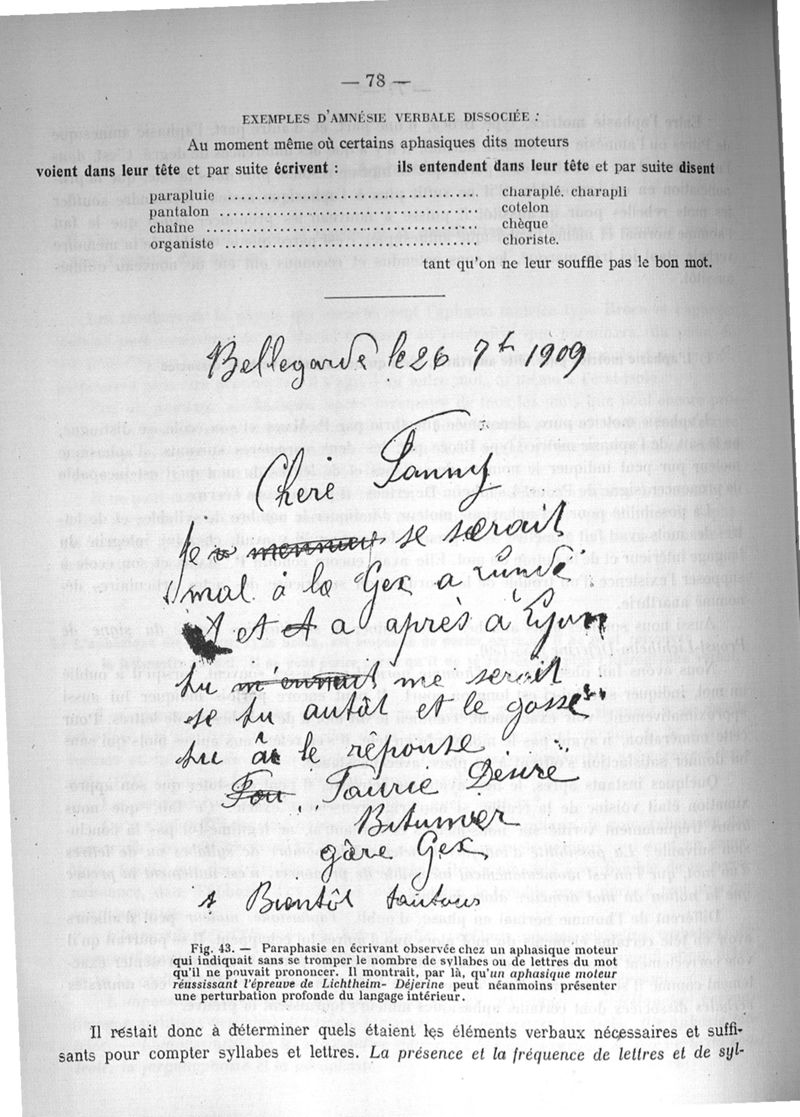 — 78 —
EXEMPLES D'AMNÉSIE VERBALE DISSOCIÉE :
Au moment même où certains aphasiques dits moteurs
voient dans leur tête et par suite écrivent : ils entendent dans leur tête et par suite disent
parapluie ........................................ charaplé. charapli
pantalon ........................................ cotelon
chaîne ........................................ chèque
organiste ........................................ choriste.
tant qu'on ne leur souffle pas le bon mot.
Bellegarde le 26 7t 1909
Chere Fanny
se serait
mal à la Gex a lundé
et A a après à Lyon
tu m'ennuit me serait
se tu autât et le gosse
tu le réponse
Fou Taurie Désiré
Bitumier
gare Gex
A Bientôt tantous
Fig. 43. — Paraphasie en écrivant observée chez un aphasique moteur
qui indiquait sans se tromper le nombre de syllabes ou de lettres du mot
qu'il ne pouvait prononcer. Il montrait, par là, qu'un aphasique moteur
réussissant l'épreuve de Lichtheim-Déjerine peut néanmoins présenter
une perturbation profonde du langage intérieur.
Il restait donc à déterminer quels étaient les éléments verbaux nécessaires et suffi-
sants pour compter syllabes et lettres. La présence et la fréquence de lettres et de syl-